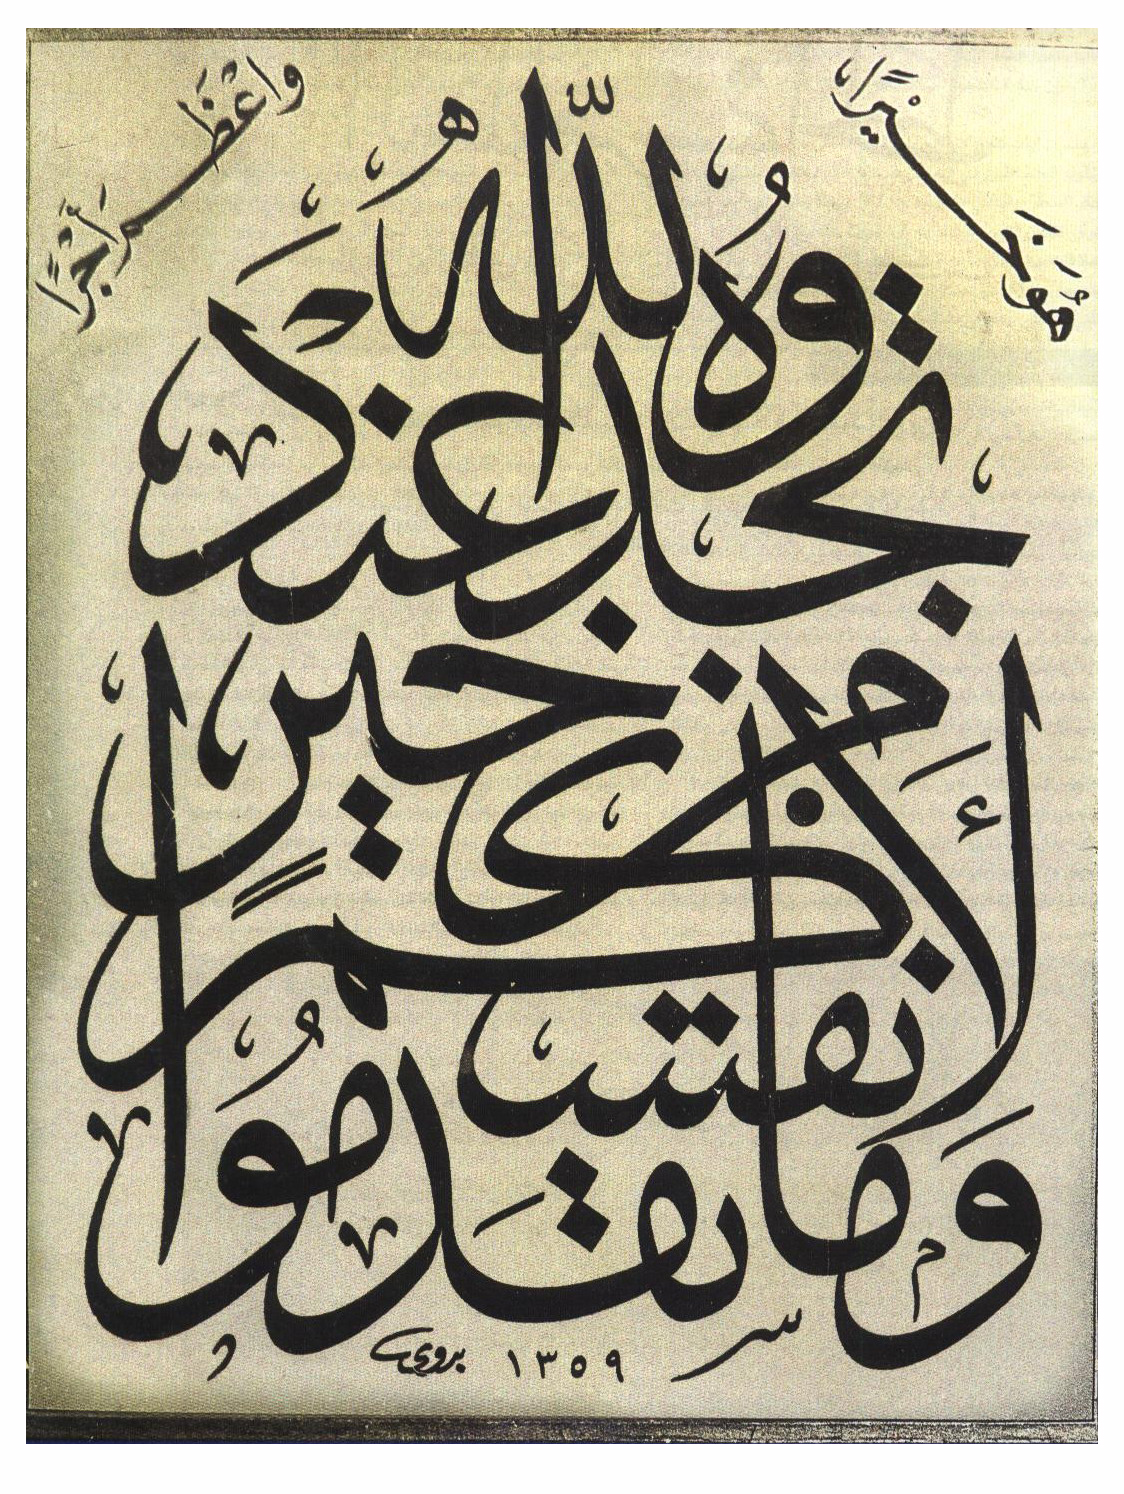 وَمَا تقَدمُوا
لأَنفسكم مِن خيرٍ
تجدوهُ عند اللّه
هُوَ خَيْرًا
وأعْظَم أَجْرًا
بدوي ١٣٥٩